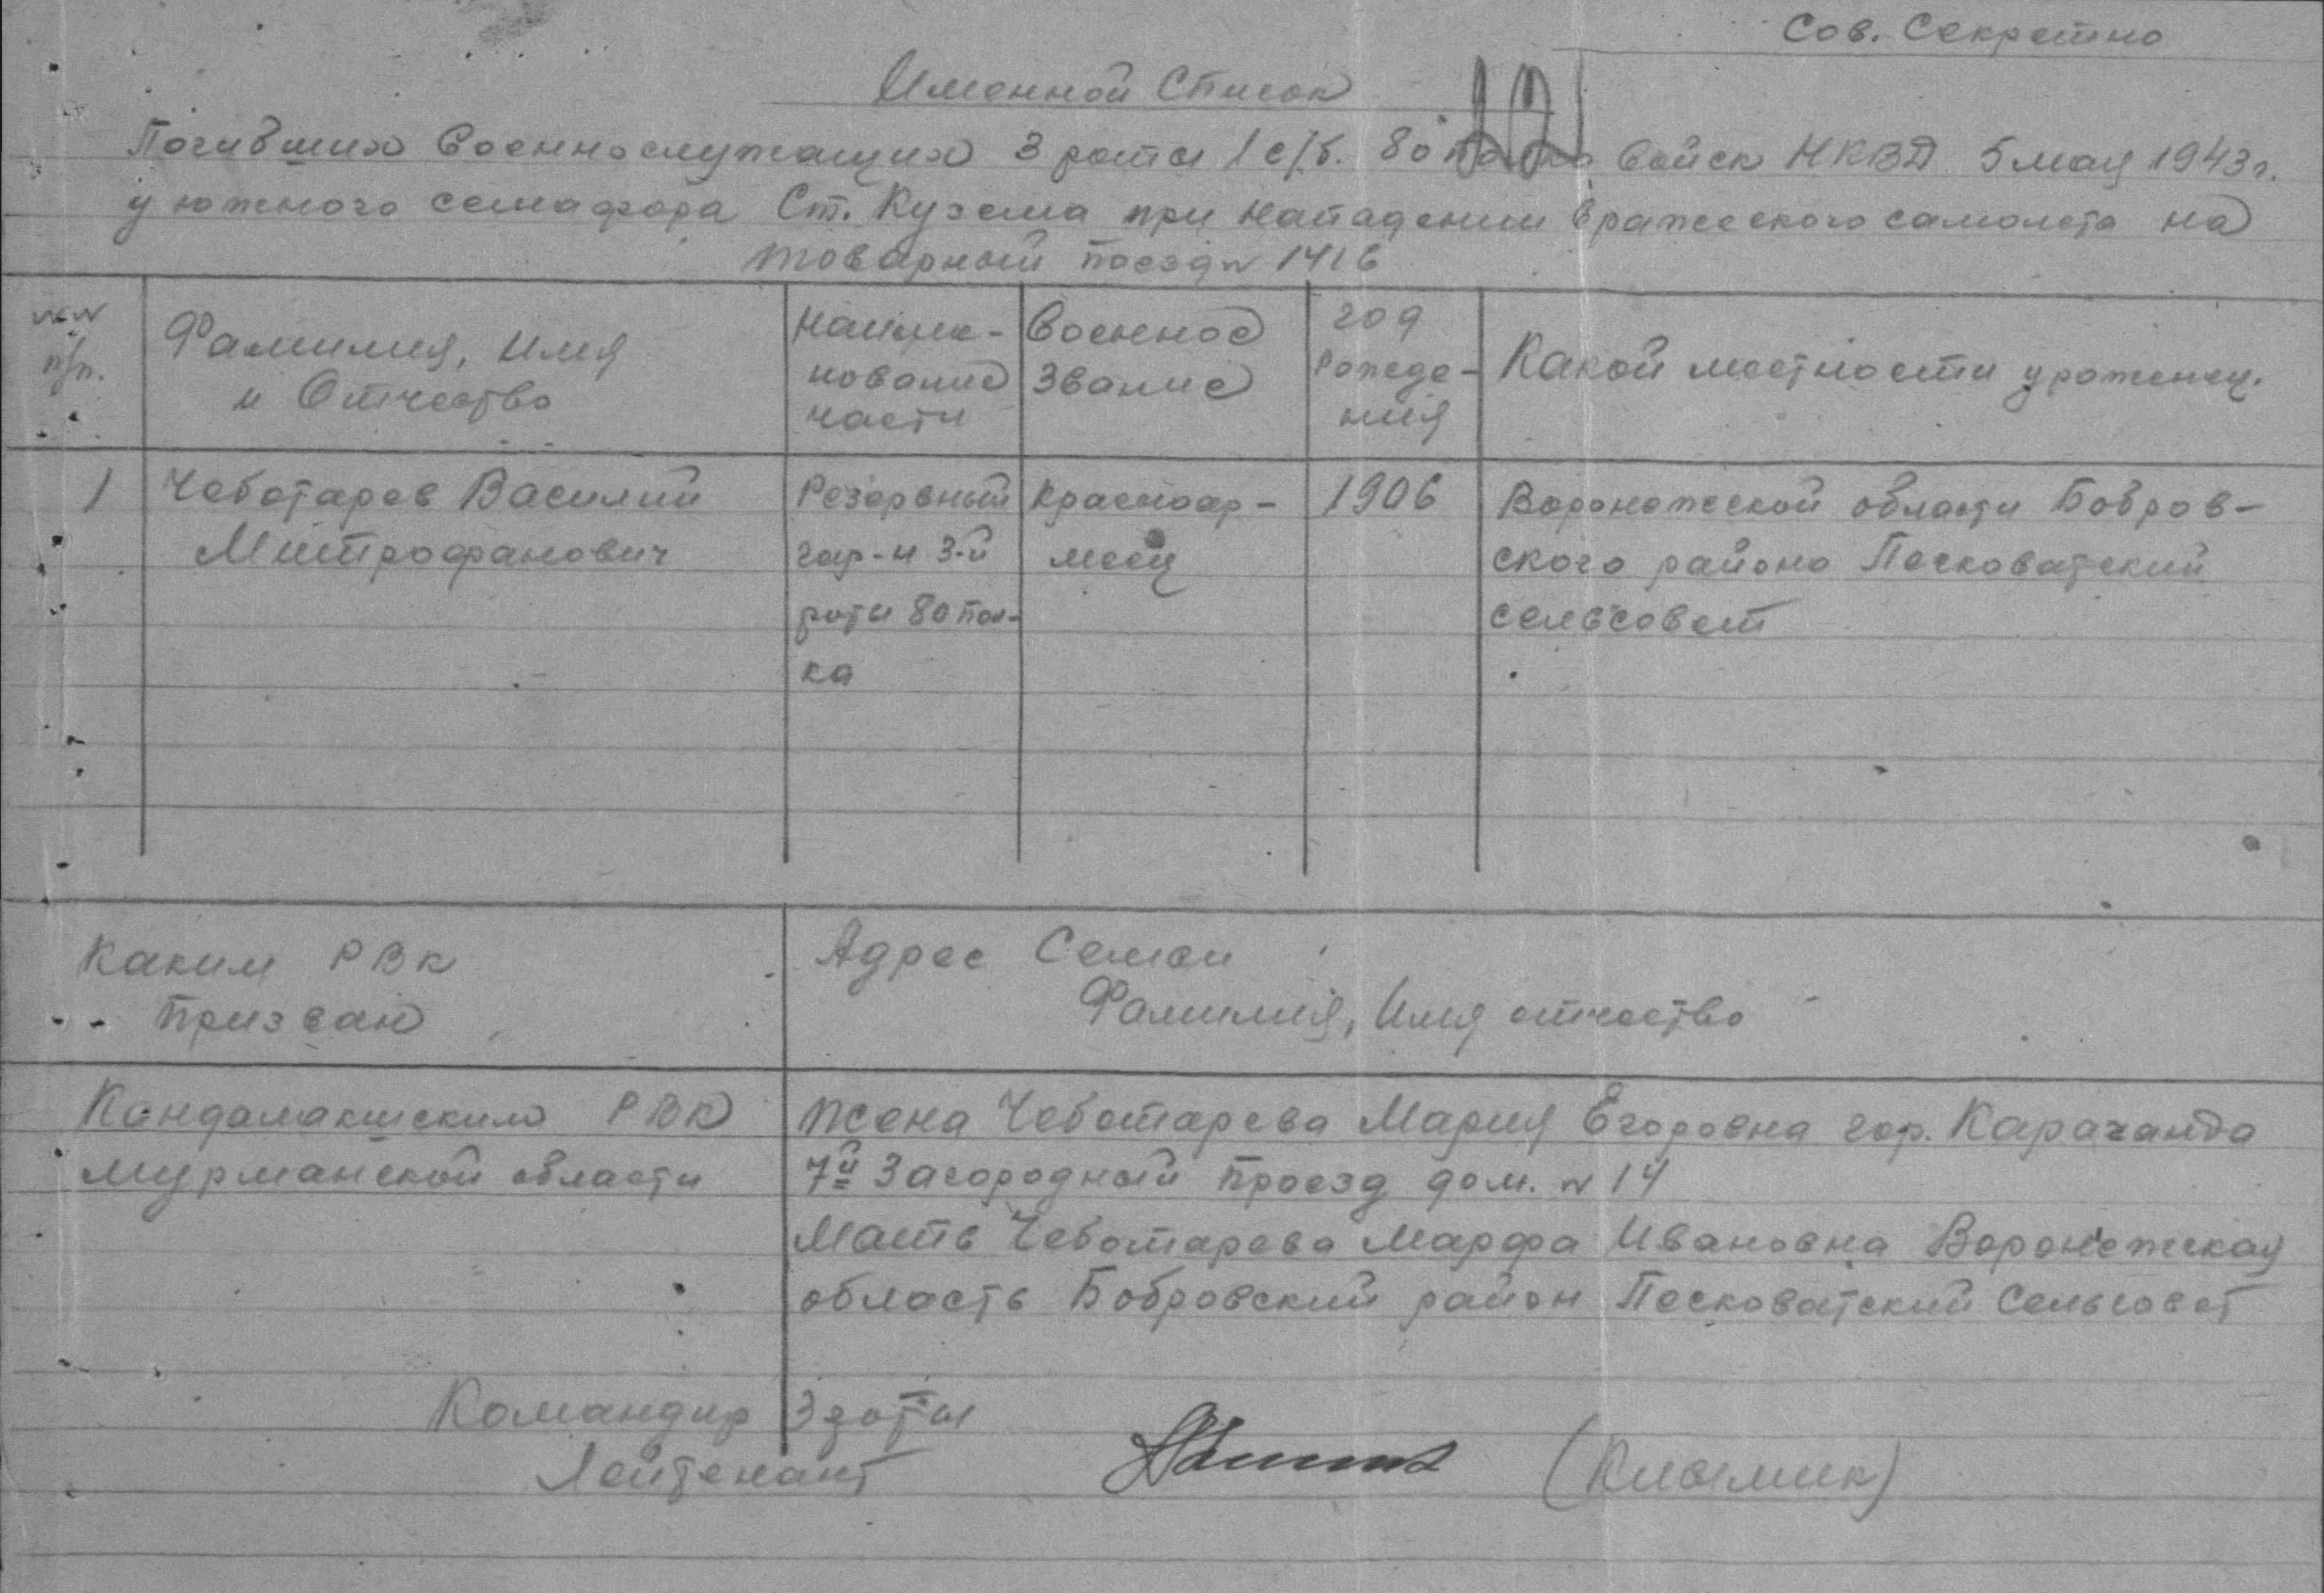 Сов. Секретно
Именной Список
Погибших военнослужащих 3 роты 1 с/б. 80 полка войск НКВД 5 мая 1943 г.
у южного семафора Ст. Кузема при нападении вражеского самолета на
товарный поезд № 1416
№№ п/п.
Фамилия, имя
и Отчество
Наиме-
нование
части
Военное
Звание
год
Рожде-
ния
Какой местности уроженец.
1
Чеботарев Василий
Митрофанович
Резервный
гар-н 3-й
роты 80 пол-
ка
Красноар-
меец
1906
Воронежской области Бобров-
ского района Песковатский
сельсовет
Каким РВК
призван
Адрес Семьи
Фамилия, Имя отчество
Кандалакшским РВК
Мурманской области
жена Чеботарева Мария Егоровна гор. Караганда
7й Загородный проезд дом. № 14
Мать Чеботарева Марфа Ивановна Воронежская
область Бобровский район Песковатский Сельсовет
Командир 3 роты
Лейтенант